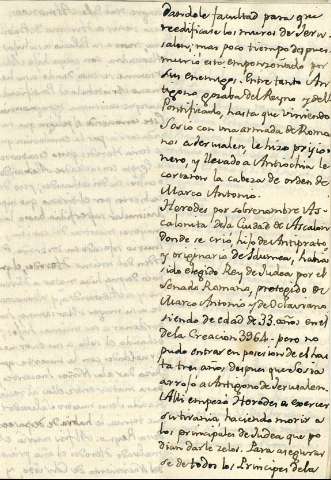 dandole facultad para que
reedificase los muros de Jeru-
salen; mas poco tiempo despues
murio este emponzoñado por
sus enemigos. Entre tanto An-
tigono gozaba del Reyno y del
Pontificado, hasta que viniendo
Sosio con una armada de Roma-
nos a Jerusalen, le hizo prisio-
nero, y llevado a Antiochia le
cortaron la cabeza de orden de
Marco Antonio.
Herodes por sobrenombre As-
calonita de la Ciudad de Ascalon
donde se crio, hijo de Antiprato
y originario de Idumea, habia
sido elegido Rey de Judea por el
Senado Romano, protegido de
Marco Antonio y de Octaviano
siendo de edad de 33. años en el
de la Creacion 3964 - pero no
pudo entrar en posesion de el has-
ta tres años, despues que Sosio
arrojo a Antigono de Jerusalem.
Alli empezó Herodes a exercer
su tirania haciendo morir a
los principales de Judea que po
dian darle zelos. Para asegurar
se de todos los Principes de la